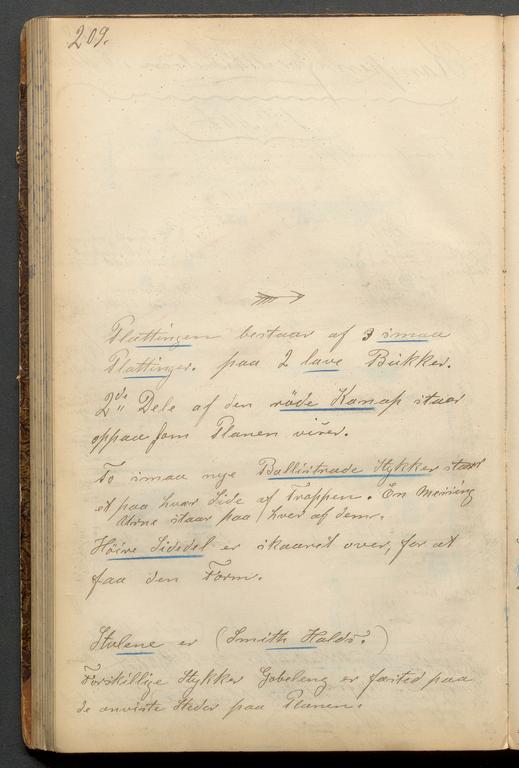 209.
Plattingen bestaar af 3 smaa
Plattinger. paa 2 lave Bukker.
2de Dele af den røde Kanap staar
oppaa som Planen viser.
To smaa nye Ballistrade Stykker staar
et paa hver Side af Trappen. En Messing
Urne staar paa hver af dem.
Høire Sidedel er skaaret over, for at
faa den Form.
Stolene er (Smith Halds?)
Forskillige Stykker Gobeleng er fæsted paa
de anviste Steder paa Planen.